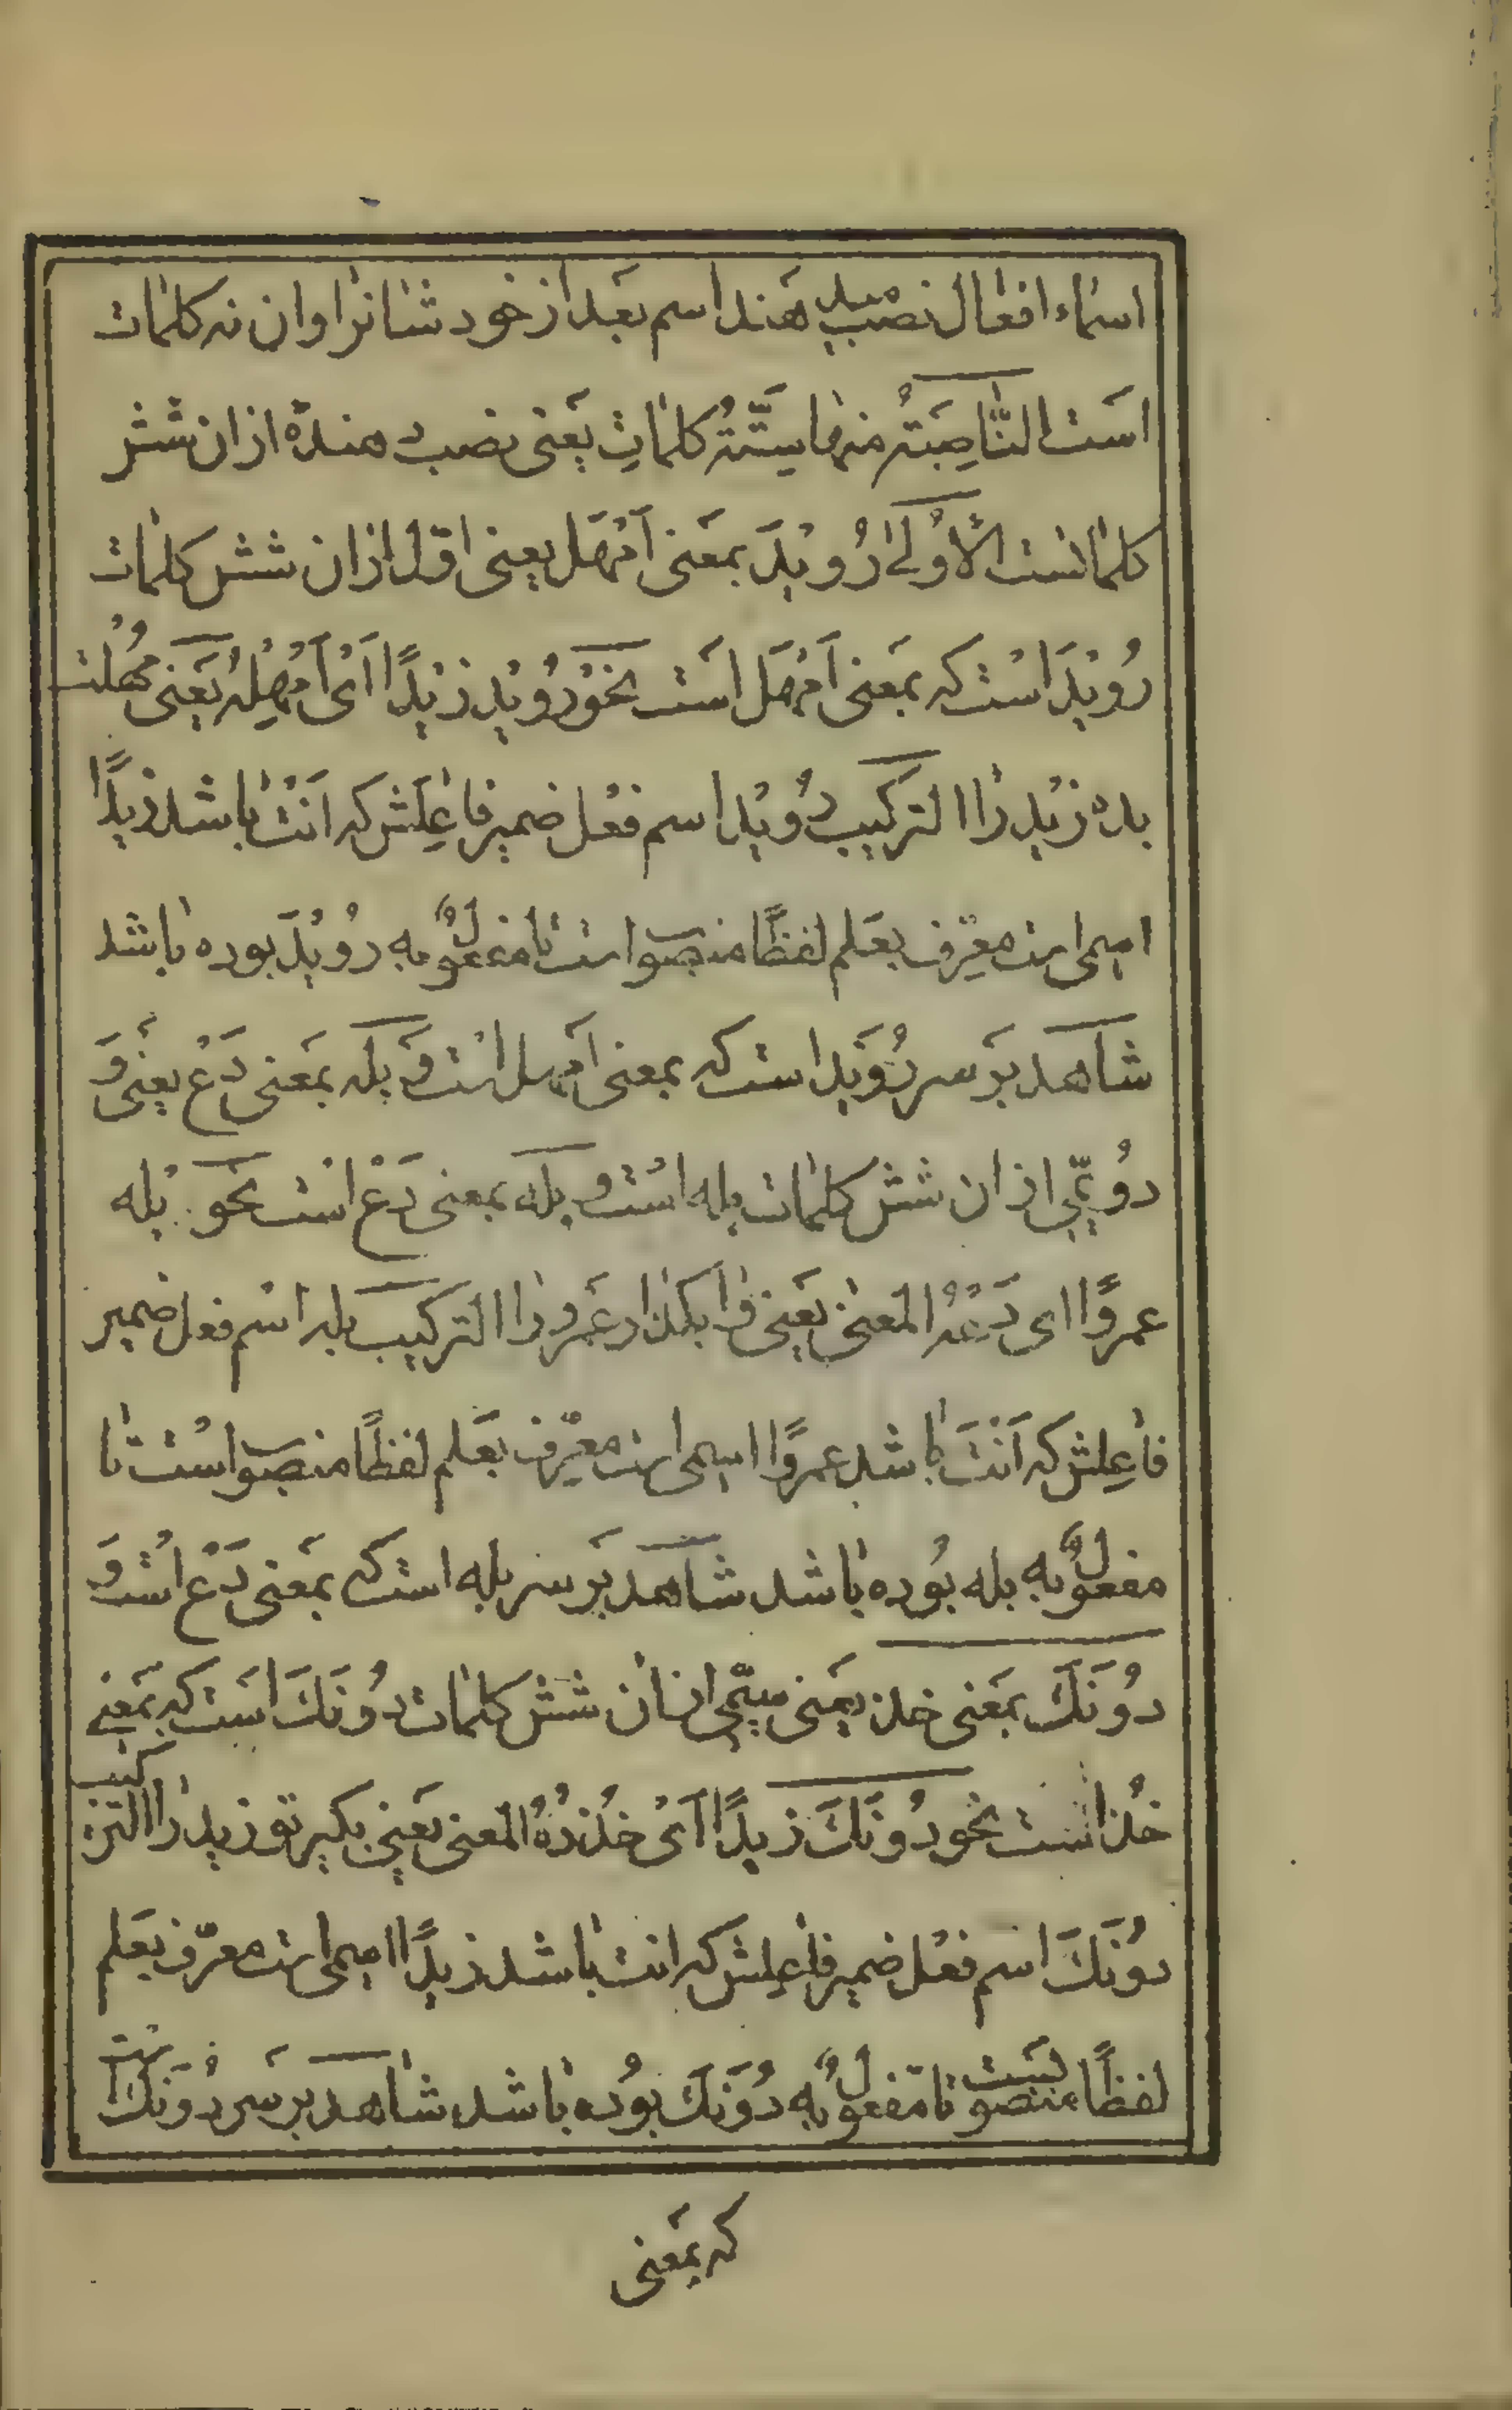 اسماء افعال نصب میدهند اسم بعد از خود شانرا و ان نه کلمات
است النَّاصِبَةُ منها سِتَّةُ کلماتٍ یَعنی نصب دهندهٔ از ان شش
کلمات است الاُولیٰ رُوَیْدَ بمَعنی اَمْهِل یعنی اوّل از ان شش کلمات
رُوَیْدَ اسْت که بمَعنی اَمْهِل اسَت نَحْوُ رُوَیْد زَیْدًا اَیْ اَمْهِلْهُ یَعَنی مُهْلت
بده زَیْد رٰا الترکیب رُوَیْد اسم فعْل ضمیر فاعِلَش که اَنْتَ باشد زیدًا
اسمی است معرّف بعَلم لفظًا منصوب است تا مفعولٌ به رُوَیْدَ بوده باشد
شاهد بَر سر رُوَیْد است که بمعنی امهل است وَ بله بمَعنی دَعْ یعنی وَ
دُویّمی از ان شش کلمات بله اسْت و بله بمعنی دَعْ است نحَو بَله
عمروًا ای دَعْهُ المعنی یَعَنی وا بگذار عَمرو را الترکیب بله اسْم فعل ضمیر
فاعِلش که اَنْتَ باشد عمروًا اسمی است معرّف بعَلم لفظًا منصوب است تا
مفعولٌ به بله بُوده باشد شاهد بَر سر بله است که بمَعنی دَعْ است وَ
دُوَنَكَ بمَعنی خذ یَعنی سیّمی از ان شش کلمات دُوَنَكَ اسَت که بمَعنی
خُذ است نحو دُوَنَكَ زیدًا اَیْ خُذْهُ المعنی یَعَنی بکیر تو زید را الترکیب
دوُنَكَ اسْم فعْل ضمیر فاعِلش که انت باشد زیدًا اسمی است معرّف بعَلم
لفظًا منصوبست تا مفعولٌ به دُوَنَكَ بوُده باشد شاهد بر سَر دُوَنَكَ است
که بمَعنی